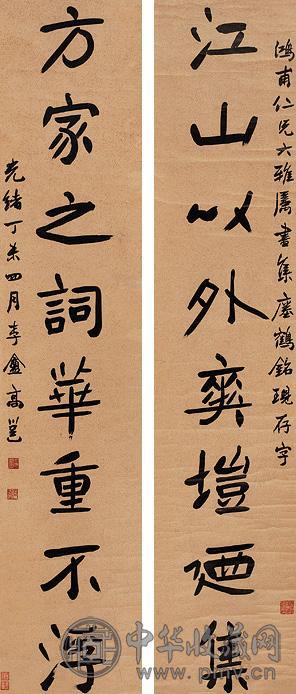 鴻甫仁兄大雅屬書集瘞鶴銘現存字
江山以外爽塏廼集
方家之詞華重不浮
光緒丁未四月李盦高邕
中华收藏网